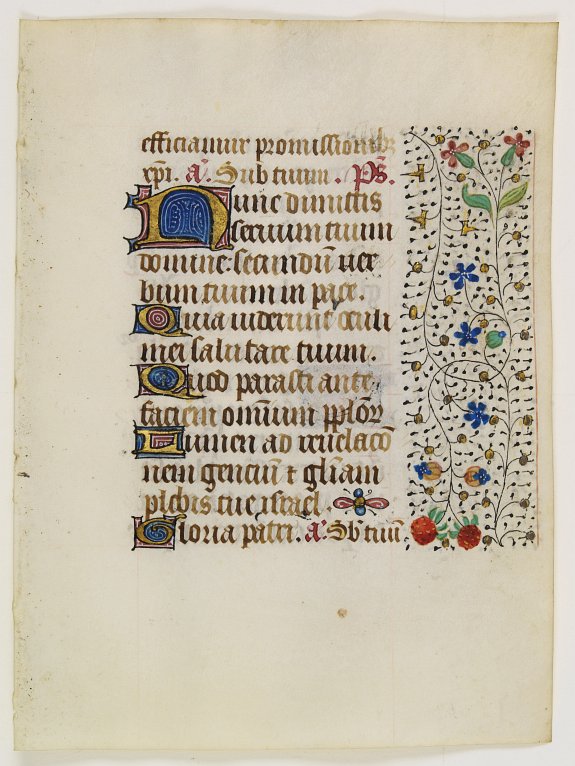 efficiamur promissionibz
xpi. a. Sub tuum. ps.
Nunc dimittis
seruum tuum
domine: secundū uer
bum tuum in pace.
Quia uiderunt oculi
mei salutare tuum.
Quod parasti ante
faciem omnium pplōꝝ
Lumen ad reuelacō
nem genciū ⁊ glīam
plebis tue israel.
Gloria patri. a. Sb tuū